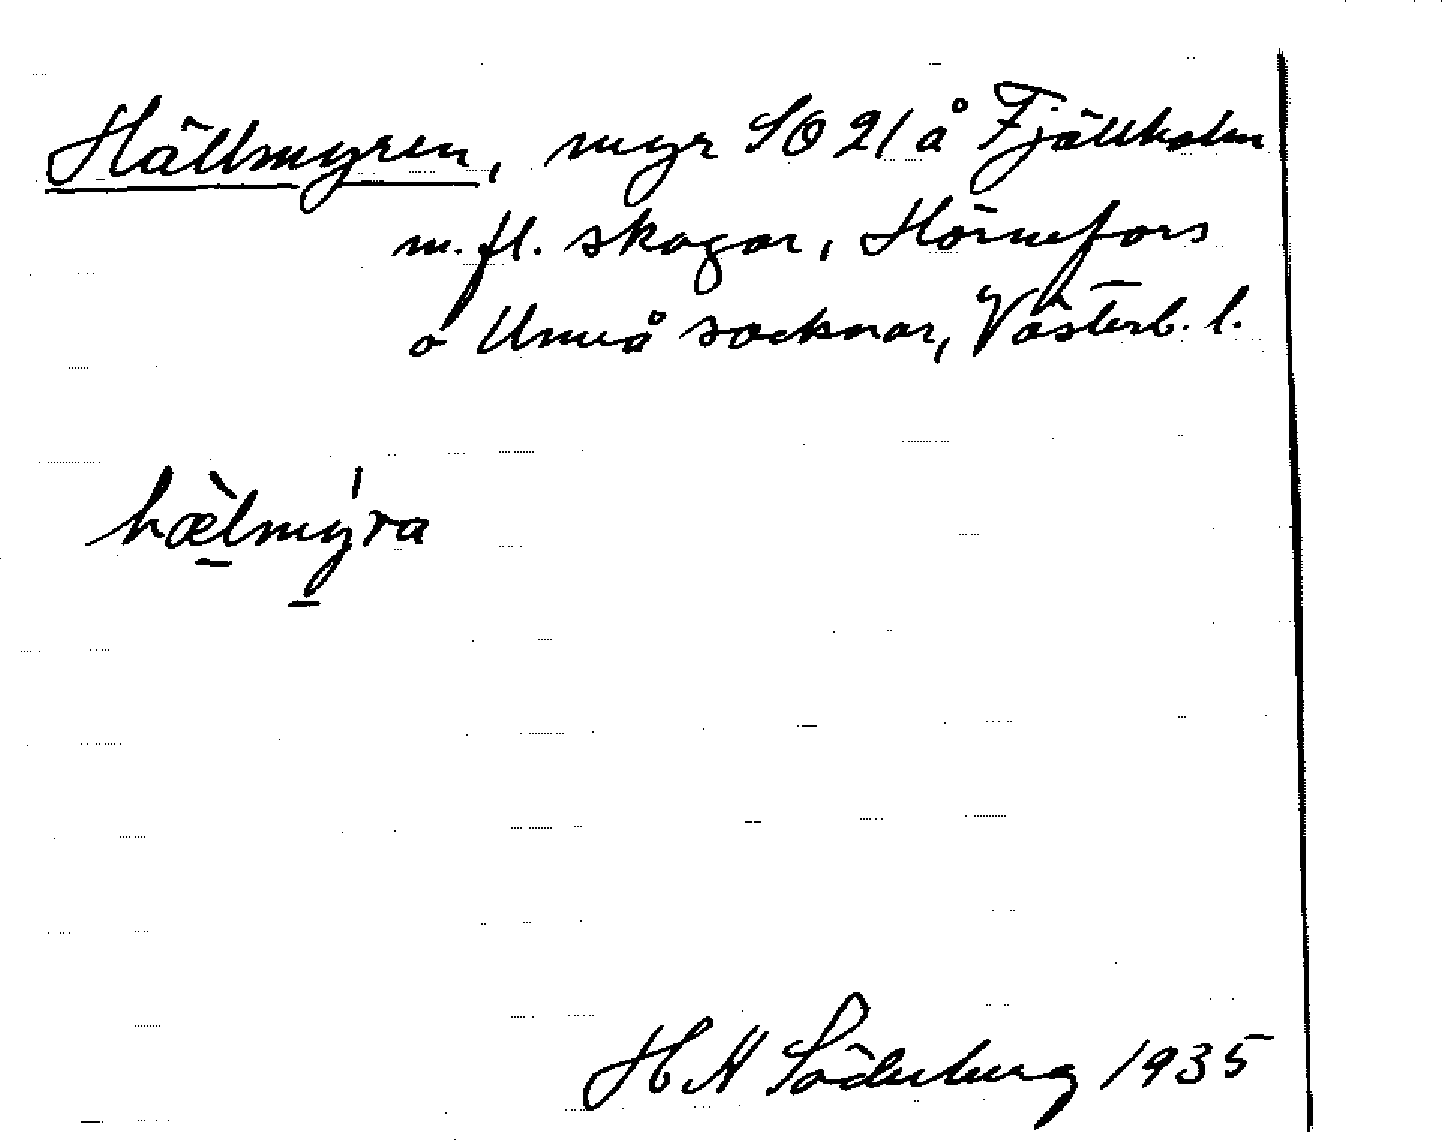 Hällmyren, myr SO 21 å Fjällholm
m. fl. skogar, Hörnefors
o Umeå socknar, Västerb. l.
hæ̀lmy̍ra
H Söderberg 1935